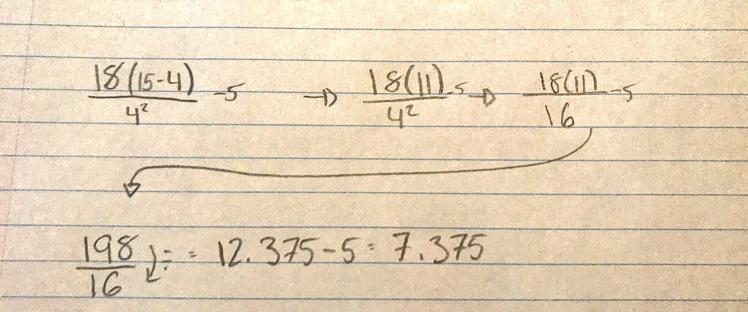 18(15-4)/4² -5 → 18(11)/4² -5 → 18(11)/16 -5
198/16 ÷ = 12.375-5= 7.375